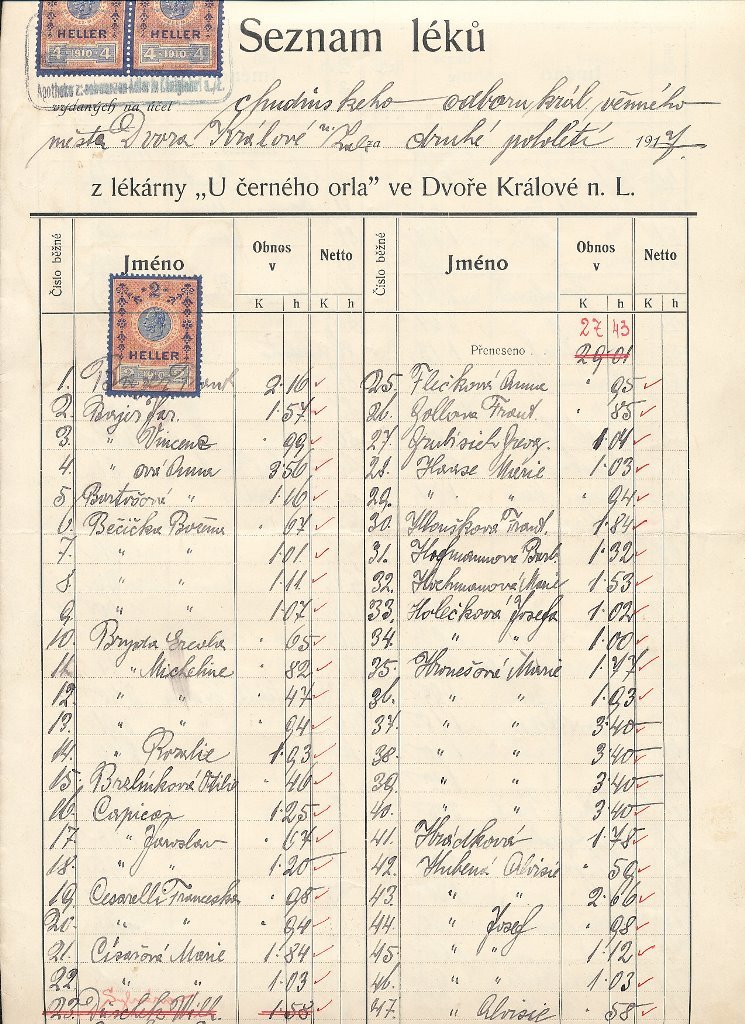 HELLER HELLER
4 1910 4 4 1910 4
Seznam léků
vydaných na účet chudinského odboru král. věnného
města Dvora Králové n/Lab. za druhé pololetí 191
z lékárny „U černého orla" ve Dvoře Králové n. L.
Číslo běžné Jméno Obnos v Netto Číslo běžné Jméno Obnos v Netto
K h K h K h K h
2
HELLER
27 43
Přeneseno 29·01
1. 2·16 25. Flečková Anna " 95
2. Bajer Jar. 1·57 26. Gollova Frant. " 85
3. " Vincenc " 99 27. 1·01
4. " ová Anna 3·56 28. Haase Marie 1·03
5. Bartošová " 1·16 29. " " " 94
6. Bečička Božena " 67 30. Hloušková Frant. 1·84
7. " " 1·01 31. Hofmannova Barb. 1·32
8. " " 1·11 32. Hochmanová Marie 1·53
9. " " 1·07 33. Holečková Josefa 1·02
10. " 65 34. " " 1·00
11. " Micheline " 82 35. Hronešová Marie 1·77
12. " " " 47 36. " " 1·93
13. " " " 94 37. " " 3·40
14. " Rozalie 1·93 38. " " 3·40
15. Brzlínková Otilie " 46 39. " " 3·40
16. 1·25 40. " " 3·40
17. " Jaroslav " 67 41. Hrádková 1·78
18. " " 1·20 42. Hubená Aloisie " 59
19. Cesarelli Franceska " 98 43. " " 2·66
20. " " " 94 44. " Josef " 98
21. Císařová Marie 1·84 45. " " 1·12
22. " " 1·03 46. " " 1·03
23. 1·58 47. " Aloisie " 58